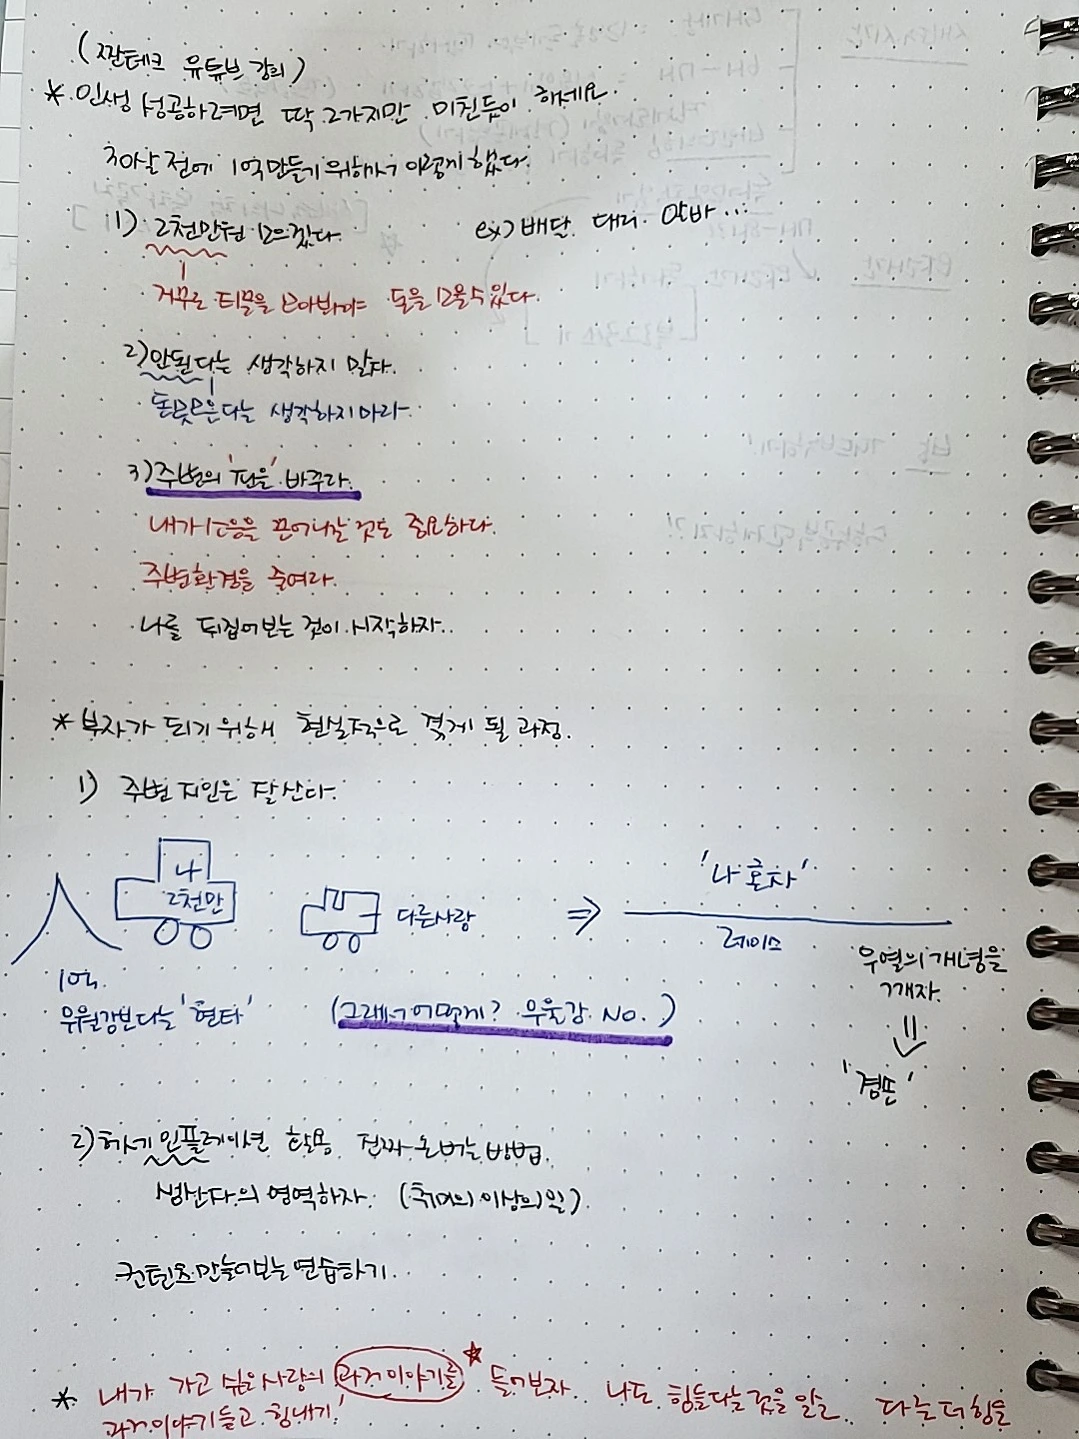 (짠테크 유튜브 강의)
* 인생 성공하려면 딱 2가지만 미친듯이 하세요.
30살 전에 1억만들기 위해서 이렇게 했다.
1) 2천만원 모으겠다. ex) 배달. 대리. 알바...
티끌을 모아봐야 돈을 모을수있다.
2) 안된다는 생각하지 말자.
돈못모은다는 생각하지마라.
3) 주변의 '판을' 바꾸라.
내가 끊어나갈 것도 중요하다.
주변환경을 줄여라.
나를 뒤집어보는 것이 시작하자.
* 부자가 되기 위해 현실적으로 겪게 될 과정.
1) 주변 지인은 잘 산다.
나
2천만
다른사람
⇒
'나 혼자'
레이스
우열의 개념을
깨자.
1억.
우월감보다는 '현타'
(그래서 어떻게? 우울감 NO.)
2) 인플레이션 활용 진짜 돈버는 방법.
생산자의 영역하자. (취미의 이상의 일)
컨텐츠 만들어보는 연습하기.
* 내가 가고 싶은사람의 과거이야기를 들어보자. 나도 힘들다는것을 알을 다들 더 힘을
과거이야기 듣고 힘내기!